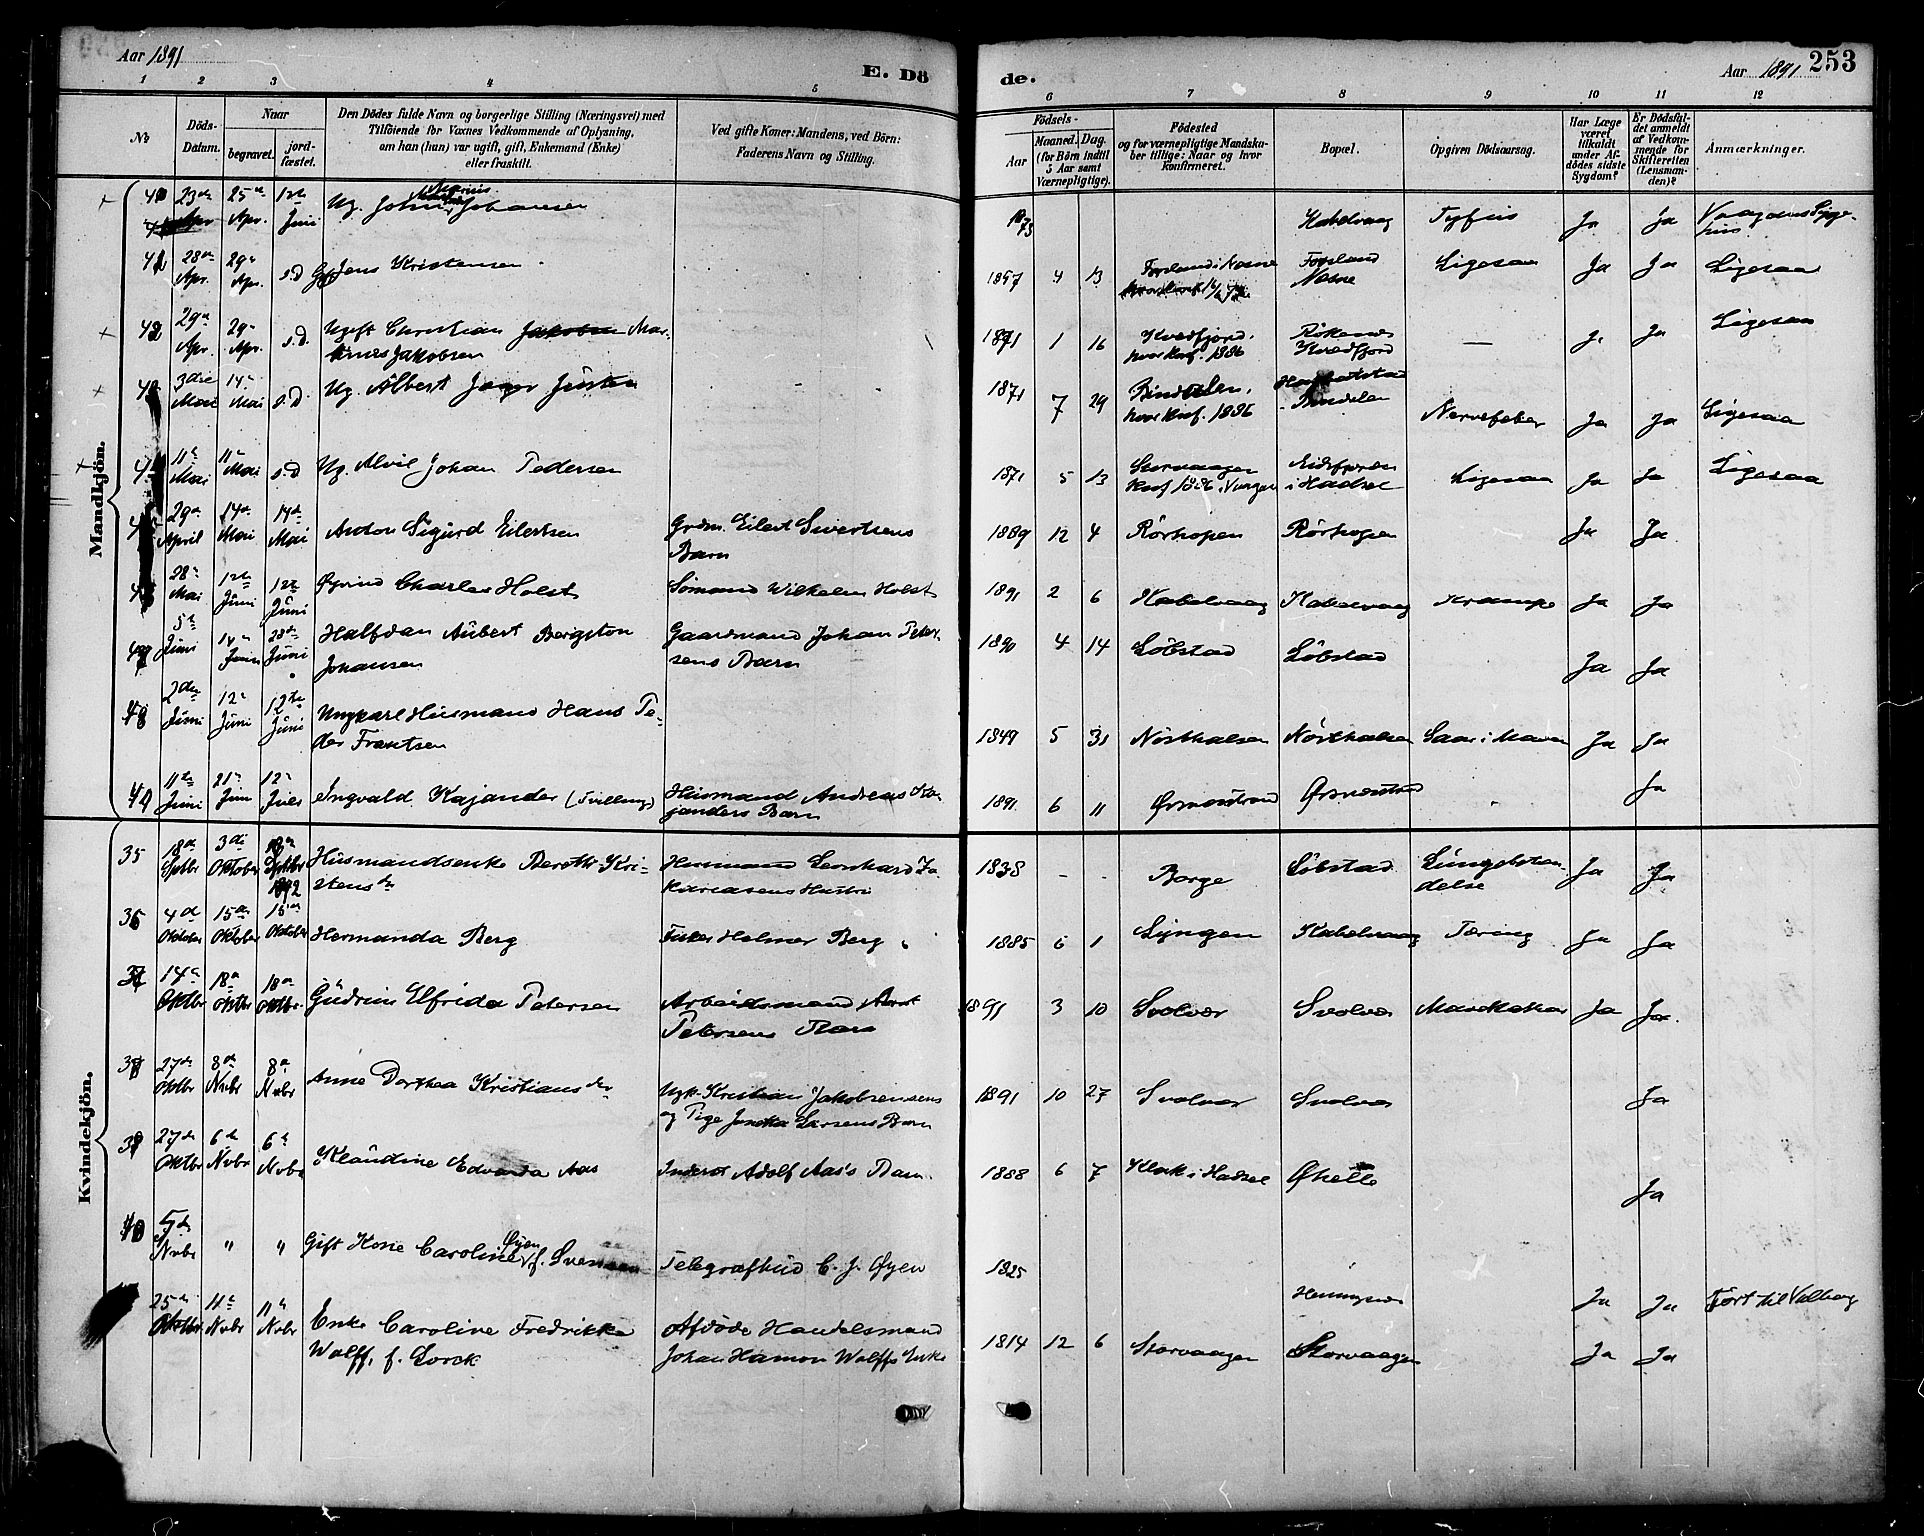 Aar 1891
E. Dö
de.
Aar 1891
253
1 2 3 4 5 6 7 8 9 10 11 12
No
Döds-Datum.
Naar
begravet.
jord-fæstet.
Den Dödes fulde Navn og borgerlige Stilling (Næringsvei) med
Tilföiende for Voxnes Vedkommende af Oplysning,
om han (hun) var ugift, gift, Enkemand (Enke)
eller fraskilt.
Ved gifte Koner: Mandens, ved Börn:
Faderens Navn og Stilling.
Födsels-
Aar
Maaned. Dag.
(for Börn indtil
5 Aar samt
Værnepligtige).
Födested
og for værnepligtige Mandska-
ber tillige: Naar og hvor
konfirmeret.
Bopæl.
Opgiven Dödsaarsag.
Har Læge
været
tilkaldt
under Af-
dödes sidste
Sygdom?
Er Dödsfal-
det anmeldt
af Vedkom-
mende for
Skifteretten
(Lensman-
den)?
Anmærkninger.
Mandkjön.
40 23de Apr 25de Apr. 12te Juni Ug. Johan Marius Johansen 1873 Kabelvaag Tyfus Ja Ja Vaagenes Syge-
hus
41 28de Apr. 29de Apr. s.D G. Jens Kristensen 1857 4 13 Forland i Næsne Forland Næsne Ligesaa Ja Ja Ligesaa
42 29de Apr. 29de Apr. s.D Ugift Christian Jakobsen Mar-
Jakobsen 1871 1 16 Kvedfjord. hvor konf. 1886 Røkenes Kvedfjord — Ja Ja Ligesaa
43 3die Mai 14de Mai s.D Ug. Albert Jager Justen 1871 7 29 Bindalen, hvor konf. 1886 Bindalen Nervefeber Ja Ja Ligesaa
44 11te Mai 11te Mai s.D Ug. Alvil Johan Pedersen 1871 5 13 Storvaagen konf 1886 i Vaagen Eidsfjorden i Hadsel Ligesaa Ja Ja Ligesaa
45 29de April 14de Mai 14de Mai Anton Sigurd Eilertsen Grdm. Eilert Sivertsens
Barn 1889 12 4 Rørhopen Rørhopen Ja Ja
46 28de Mai 12te Juni 12te Juni Øyvind Charles Holst Sømand Wilhelm Holst 1891 2 6 Kabelvaag Kabelvaag Krampe Ja Ja
47 5te Juni 14de Juni 28de Juni Halfdan Aubert Bergston
Johansen Gaardmand Johan Peter-
sens Barn 1890 4 14 Löbstad Löbstad Ja Ja
48 2den Juni 12te Juni 12te Juni Ungkarl Husmand Hans Pe-
der Frantsen 1849 5 31 Nösthalsen Nösthalsen Saar i Maven Ja Ja
49 11te Juni 21de Juni 12te Juli Ingvald Kajander (Tvilling) Husmand Andreas Ka-
janders Barn 1891 6 11 Ørsnesstrand Ørsnesstrand Ja
Kvindekjön.
35 18de Septbr 3die Oktober 18de Septbr 1892 Husmandsenke Berethe Kri-
stensdr Husmand Leonhard Za-
kariasens Hustru 1838 - - Borge Löbstad Lungebetæn-
delse Ja Ja
36 4de Oktober 15de Oktober 15de Oktober Hermanda Berg Fisker Helmer Berg 1885 6 1 Lyngen Kabelvaag Tæring Ja Ja
37 14de Oktbr 18de Oktbr 18de Oktbr. Gudrun Elfrida Petersen Arbeidsmand Bernt
Petersens Barn 1891 3 10 Svolvær Svolvær Ja Ja.
38 27de Oktbr 8de Nvbr 8de Nvbr Anne Dorthea Kristiansdr Ungk. Kristian Jakobsensens
og Pige Larsens Barn 1891 10 27 Svolvær Svolvær Ja
39 27de Oktbr 6te Nvbr 6te Nvbr Klaudine Edvarda Aas Inderst Adolf Aas's Barn 1888 6 7 i Hadsel Øhelle Ja
40 5te Nvbr " " Gift Kone Caroline Øyen f. Svensen Telegrafbud C. J. Øyen 1825 Henningsvær Ja Ja Ført til Valberg
25de Oktbr 11te Nvbr 11te Nvbr Enke Caroline Fredrikke
Wolff, f. Lorck Afdøde Handelsmand
Johan Hamon Wolffs Enke 1814 12 6 Storvaagen Storvaagen Ja Ja